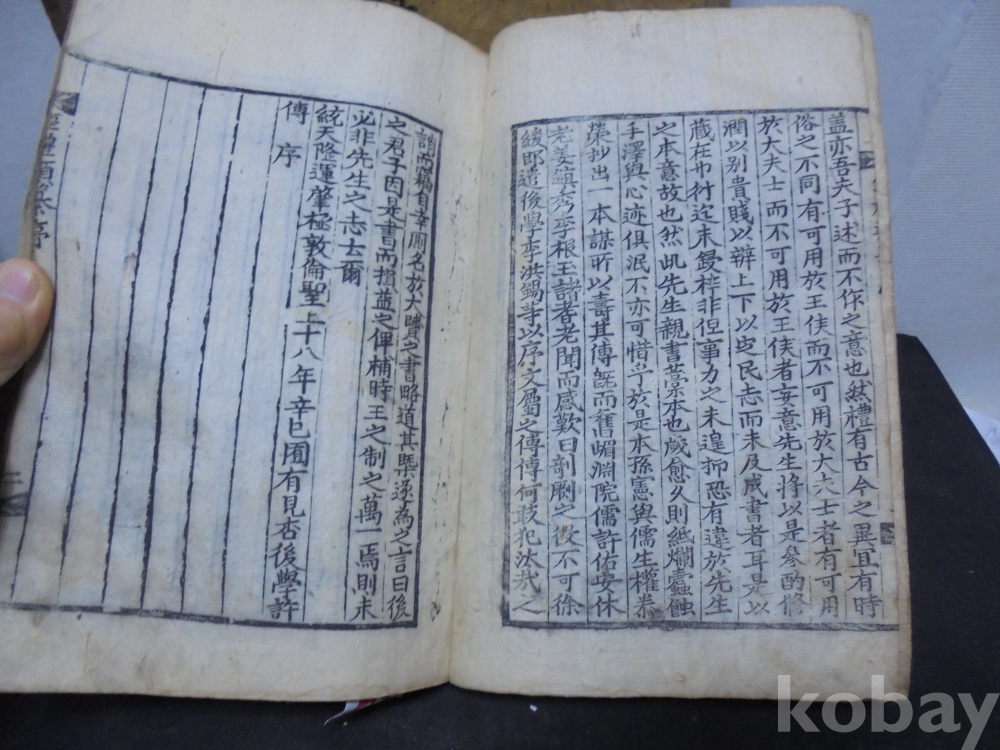 盖亦吾夫子述而不作之意也然禮有古今之異宜有時
俗之不同有可用於王侯而不可用於大夫士者有可用
於大夫士而不可用於王侯者妄意先生將以是參酌修
潤以别貴賤以辨上下以定民志而未及成書者耳是以
藏在巾衍迄未鋟梓非但事力之未遑抑恐有違於先生
之本意故也然此先生親書藁本也歲愈久則紙爛蠹蝕
手澤與心迹俱泯不亦可惜乎於是本孫憲與儒生權恭
抄出一本謀所以壽其傳既而舊嵋淵院儒許佑安休
老姜鎮秀李根玉諸耆老聞而感歎曰剞劂之役不可徐
緩郎遣後學李洪錫等以序文屬之傳傳何敢犯汰哉之
誚而竊自幸厠名於大賢之書略道其槩遂為之言曰後
之君子因是書而損益之俾補時王之制之萬一焉則未
必非先生之志云爾
統天隆運肇極敦倫聖上十八年辛巳圉有見杏後學許
傳序
序
二
kobay